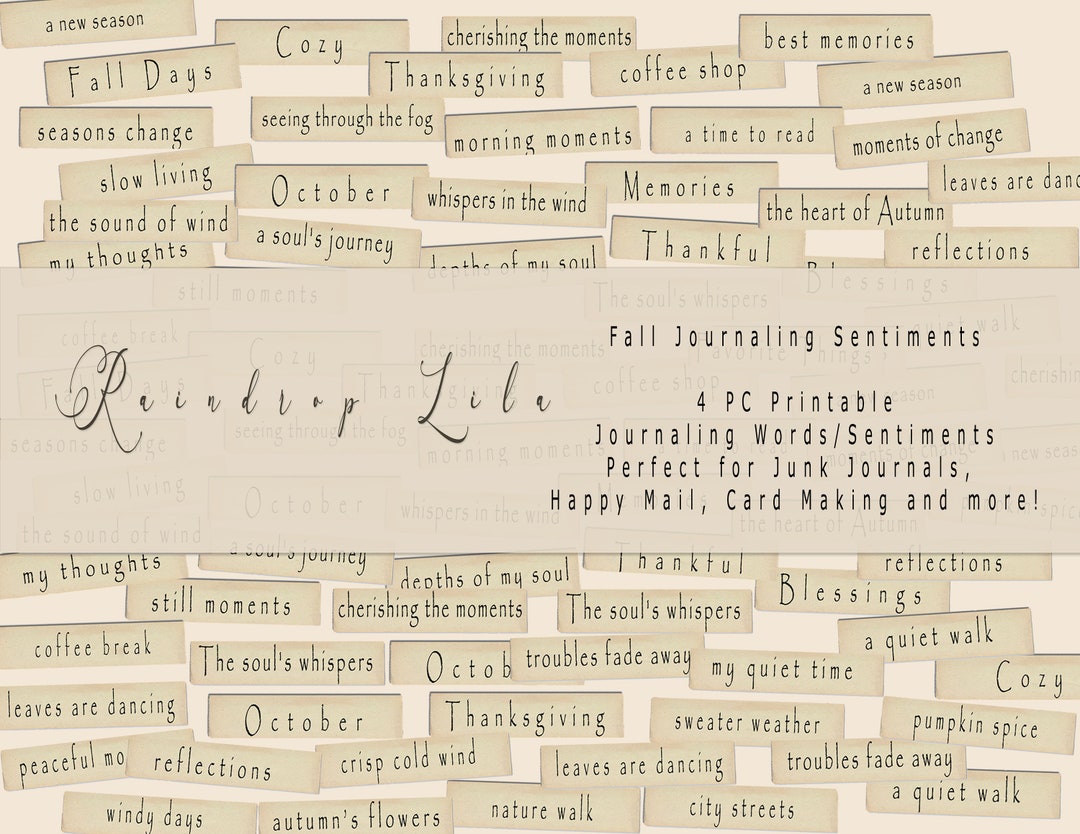 a new season
Cozy
cherishing the moments
best memories
Fall Days
Thanksgiving
coffee shop
a new season
seasons change
seeing through the fog
morning moments
a time to read
moments of change
slow living
October
whispers in the wind
Memories
the heart of Autumn
leaves are danc
the sound of wind
a soul's journey
Thankful
reflections
my thoughts
depths of my soul
Blessings
still moments
The soul's whispers
quiet walk
coffee break
Cozy
cherishing the moments
Favorite Things
cherishin
Fall Days
Thanksgiving
coffee shop
season
seasons change
seeing through the fog
morning moments
a time to read
moments of change
new seas
slow living
October
whispers in the wind
Mem
the heart of Autumn
the sound of wind
Raindrop Lila
Fall Journaling Sentiments
4 PC Printable
Journaling Words/Sentiments
Perfect for Junk Journals,
Happy Mail, Card Making and more!
my thoughts
a soul's journey
depths of my soul
Thankful
reflections
still moments
cherishing the moments
The soul's whispers
Blessings
coffee break
The soul's whispers
Octob
troubles fade away
my quiet time
a quiet walk
Cozy
leaves are dancing
October
Thanksgiving
sweater weather
pumpkin spice
peaceful mo
reflections
crisp cold wind
leaves are dancing
troubles fade away
a quiet walk
windy days
autumn's flowers
nature walk
city streets